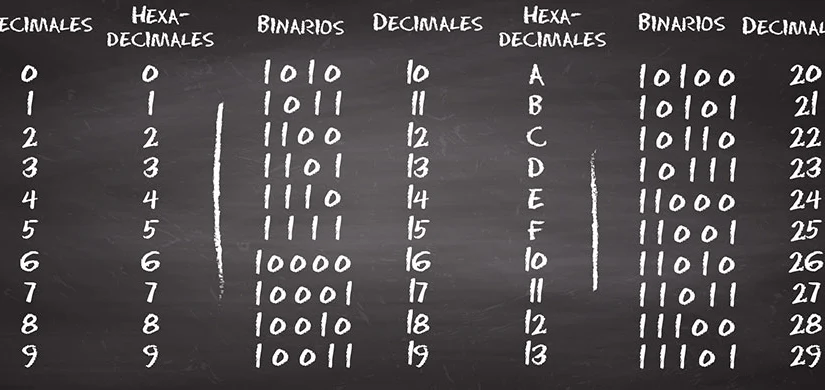 ECIMALES HEXA-DECIMALES BINARIOS DECIMALES HEXA-DECIMALES BINARIOS DECIMAL
0 0 1010 10 A 10100 20
1 1 1011 11 B 10101 21
2 2 1100 12 C 10110 22
3 3 1101 13 D 10111 23
4 4 1110 14 E 11000 24
5 5 1111 15 F 11001 25
6 6 10000 16 10 11010 26
7 7 10001 17 11 11011 27
8 8 10010 18 12 11100 28
9 9 10011 19 13 11101 29